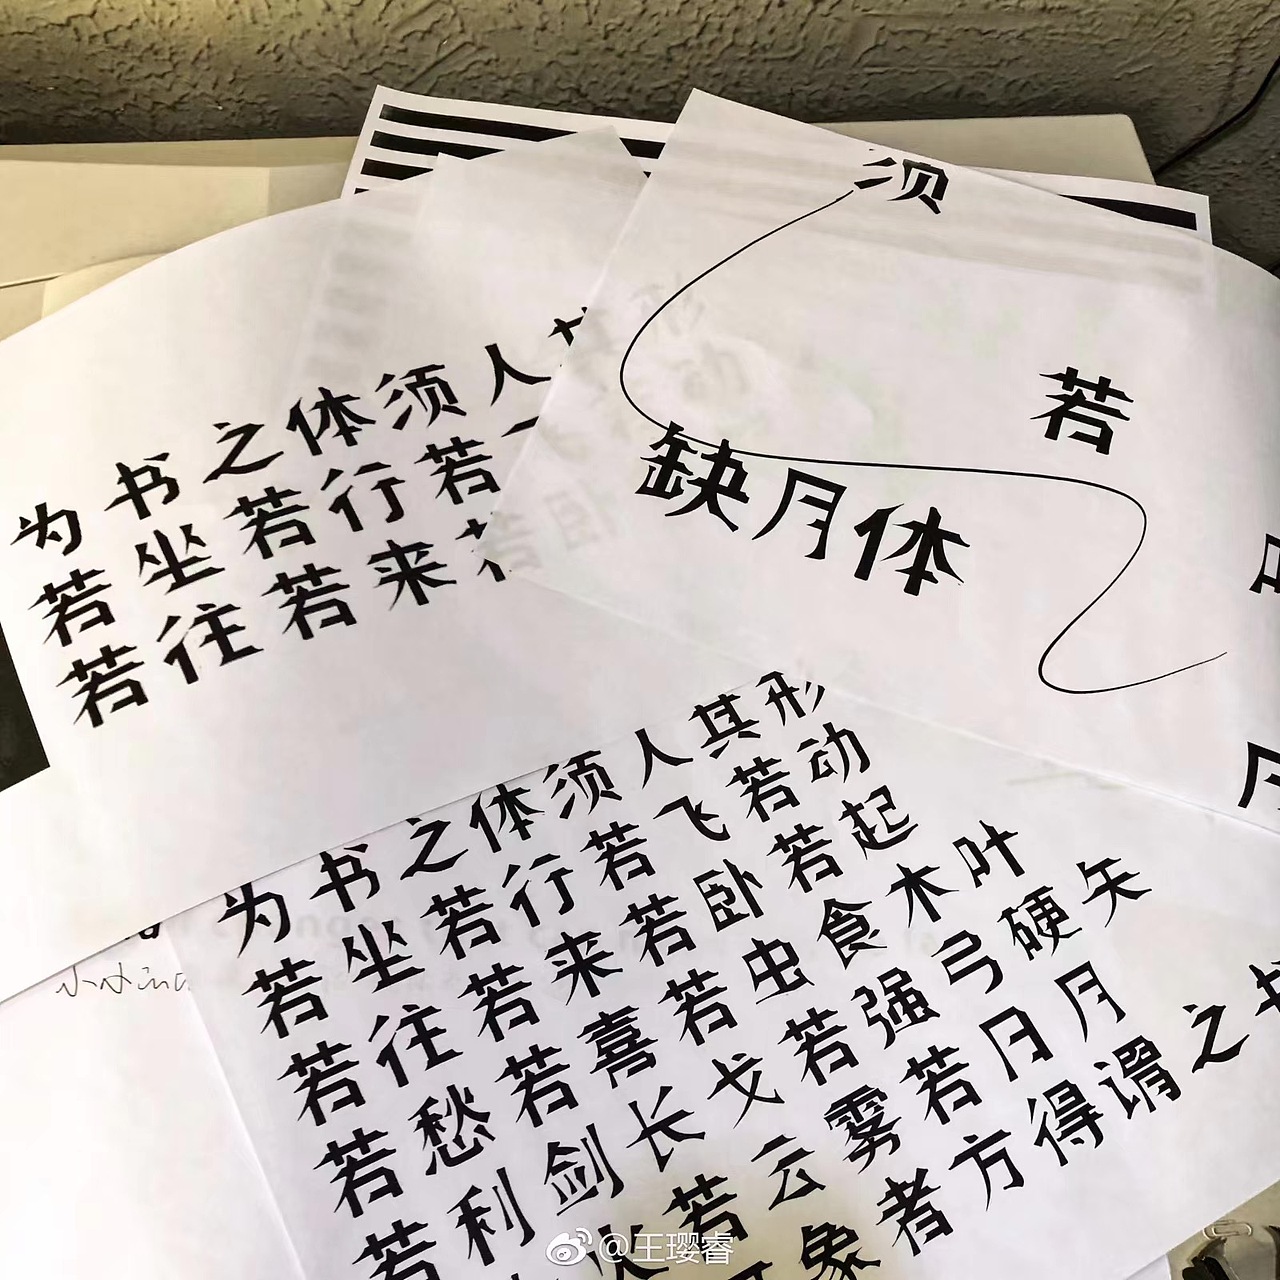 须
若
缺月体
为书之体须人
若坐若行若
若往若来
为书之体须人其形
若坐若行若飞若动
若往若来若卧若起
若愁若喜若虫食木叶
若利剑长戈若强弓硬矢
火若云雾若日月
象者方得谓之书
@王璎睿